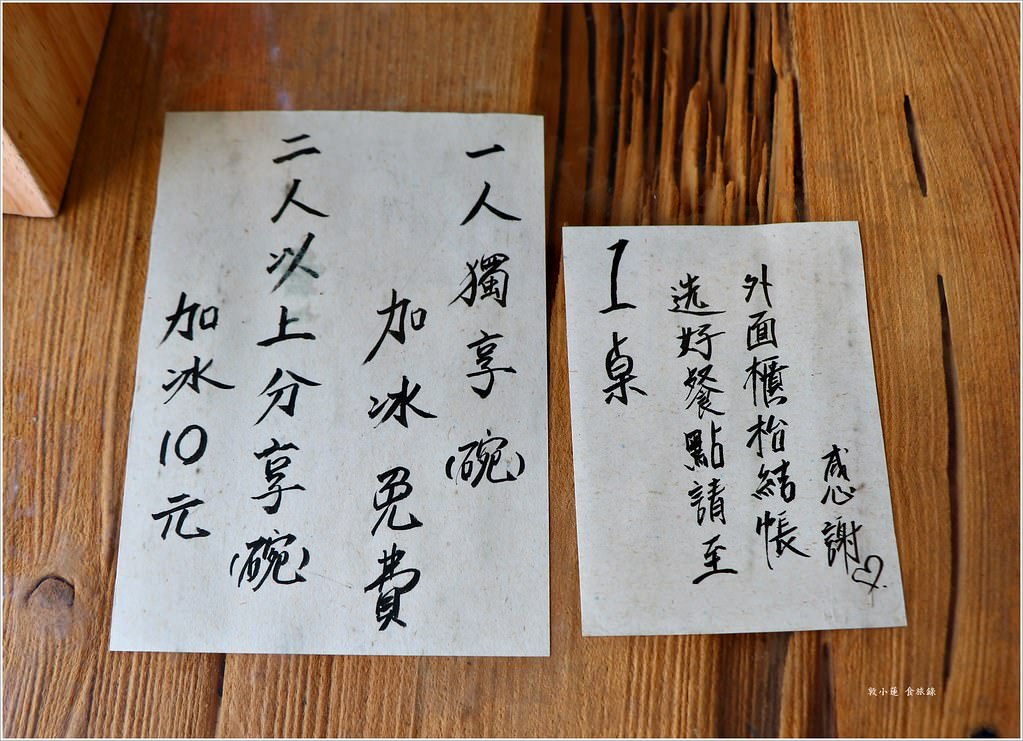 一人獨享(碗)
加冰免費
二人以上分享(碗)
加冰10元
1桌
选好餐點請至
外面櫃枱結帳
感謝♡
敦小蓮 食旅錄